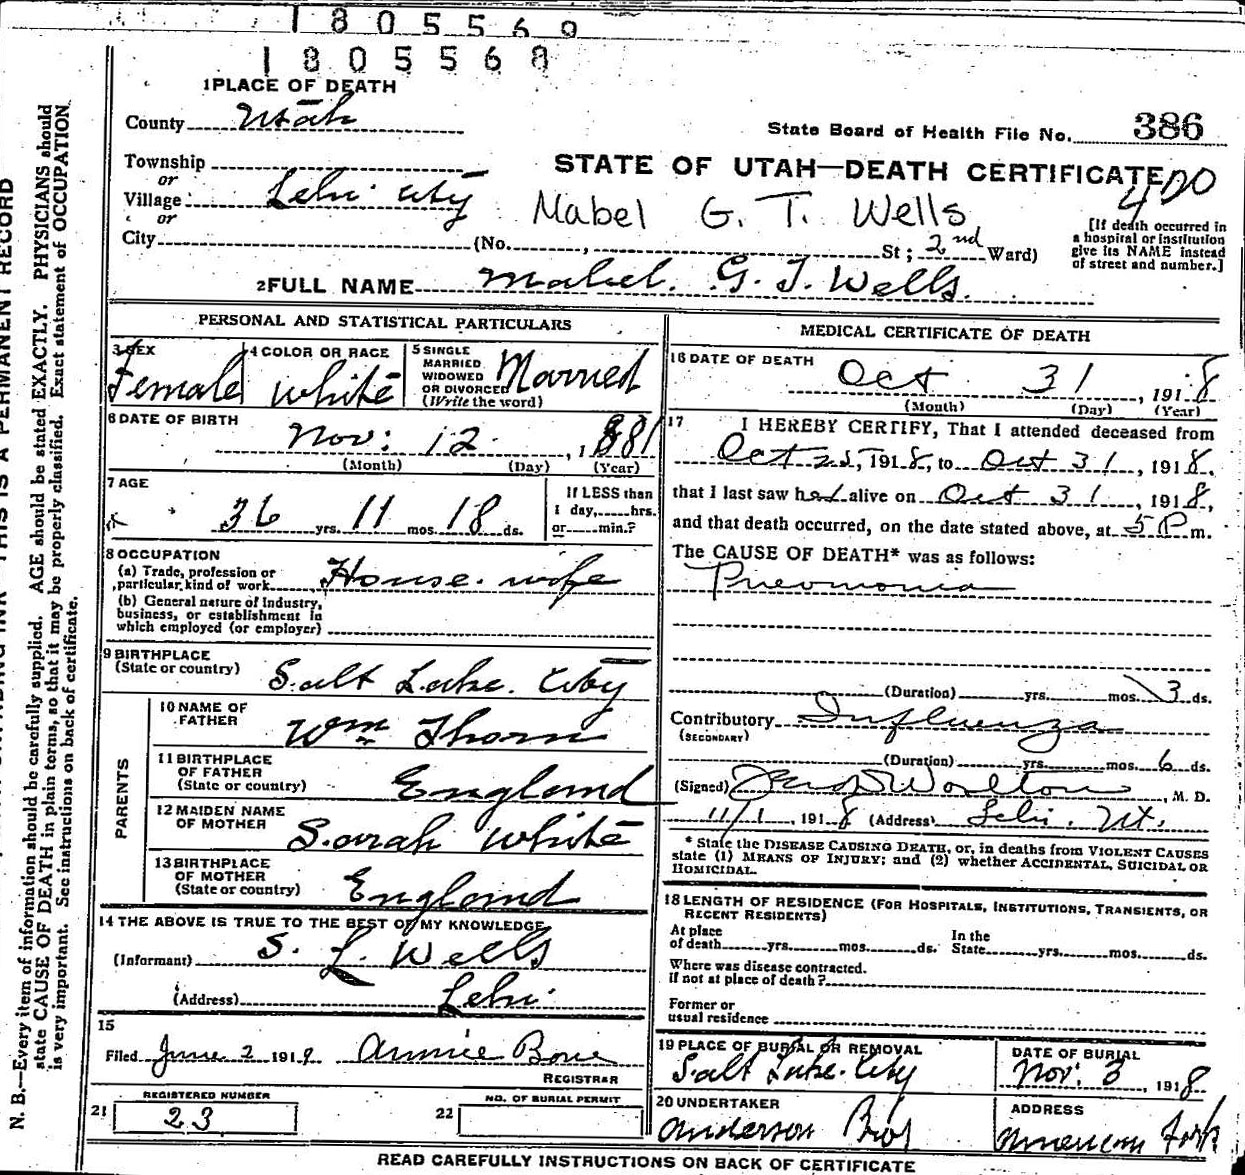 1805569
1805568
1 PLACE OF DEATH
County Utah
State Board of Health File No. 386
Township
or
Village Lehi City
or
City (No. , St; 2nd Ward)
STATE OF UTAH—DEATH CERTIFICATE
400
Mabel G. T. Wells
[If death occurred in
a hospital or institution
give its NAME instead
of street and number.]
2 FULL NAME Mabel. G. T. Wells.
PERSONAL AND STATISTICAL PARTICULARS
3 SEX Female
4 COLOR OR RACE White
5 SINGLE
MARRIED
WIDOWED
OR DIVORCED
(Write the word)
Married
6 DATE OF BIRTH
Nov: 12 , 1881
(Month) (Day) (Year)
7 AGE
36 yrs. 11 mos. 18 ds.
If LESS than
1 day, hrs.
or min.?
8 OCCUPATION
(a) Trade, profession or
particular kind of work House. wife
(b) General nature of Industry,
business, or establishment in
which employed (or employer)
9 BIRTHPLACE
(State or country) Salt Lake. City
PARENTS
10 NAME OF
FATHER Wm Thorn
11 BIRTHPLACE
OF FATHER
(State or country) England
12 MAIDEN NAME
OF MOTHER Sarah White
13 BIRTHPLACE
OF MOTHER
(State or country) England
14 THE ABOVE IS TRUE TO THE BEST OF MY KNOWLEDGE
(Informant) S. L. Wells
(Address) Lehi
15
Filed June 2 1919 Annie Bone
REGISTRAR
REGISTERED NUMBER
21 23
NO. OF BURIAL PERMIT
22
MEDICAL CERTIFICATE OF DEATH
16 DATE OF DEATH
Oct 31 , 1918
(Month) (Day) (Year)
17 I HEREBY CERTIFY, That I attended deceased from
Oct 25, 1918, to Oct 31, 1918,
that I last saw her alive on Oct 31, 1918,
and that death occurred, on the date stated above, at 5 P m.
The CAUSE OF DEATH* was as follows:
Pneomonia
(Duration) yrs. mos. 3 ds.
Contributory Influenza
(SECONDARY)
(Duration) yrs. mos. 6 ds.
(Signed) Worlton, M. D.
11/1, 1918 (Address) Lehi. Ut.
* State the DISEASE CAUSING DEATH, or, in deaths from VIOLENT CAUSES
state (1) MEANS OF INJURY; and (2) whether ACCIDENTAL, SUICIDAL OR
HOMICIDAL.
18 LENGTH OF RESIDENCE (FOR HOSPITALS, INSTITUTIONS, TRANSIENTS, OR
RECENT RESIDENTS)
At place
of death yrs. mos. ds.
In the
State yrs. mos. ds.
Where was disease contracted.
if not at place of death?
Former or
usual residence
19 PLACE OF BURIAL OR REMOVAL
Salt Lake. City
DATE OF BURIAL
Nov. 3, 1918
20 UNDERTAKER
Anderson Bros
ADDRESS
American Fork
READ CAREFULLY INSTRUCTIONS ON BACK OF CERTIFICATE
THIS IS A PERMANENT RECORD
N. B.—Every item of information should be carefully supplied. AGE should be stated EXACTLY. PHYSICIANS should
state CAUSE OF DEATH in plain terms, so that it may be properly classified. Exact statement of OCCUPATION
is very important. See instructions on back of certificate.